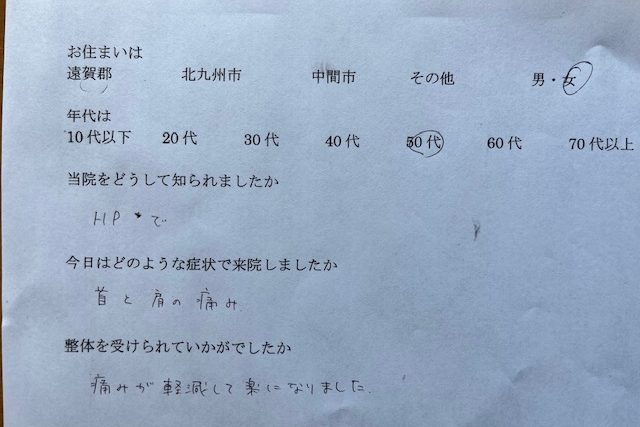 お住まいは
遠賀郡 北九州市 中間市 その他 男・女
年代は
10代以下 20代 30代 40代 50代 60代 70代以上
当院をどうして知られましたか
HPで
今日はどのような症状で来院しましたか
首と肩の痛み
整体を受けられていかがでしたか
痛みが軽減して楽になりました.